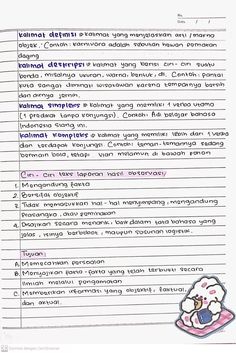 No.
Date
kalimat definisi → kalimat yang menjelaskan arti / makna
objek. Contoh: karnivora adalah sebutan hewan pemakan
daging
kalimat deskripsi → kalimat yang berisi ciri-ciri suatu
benda, misalnya ukuran, warna, bentuk, dl. Contoh: pantai
kuta sangat diminati wisatawan karena tempatnya bersih
dan airnya jernih.
kalimat simpleks → kalimat yang memiliki 1 verba utama
(1 predikat tanpa konjungsi). Contoh: Adi belajar bahasa
Indonesia siang ini.
kalimat kompleks → kalimat yang memiliki lebih dari 1 verba
dan terdapat konjungsi. Contoh: teman-temannya sedang
bermain bola, tetapi melamun di bawah pohon
Ciri-ciri teks laporan hasil observasi;
1. Mengandung fakta
2. Bersifat objektif
3. Tidak memasukkan hal-hal menyimpang, mengandung
prasangka, atau pemihakan
4. Disajikan secara menarik, baik dalam tata bahasa yang
jelas, isinya berbobot, maupun susunan logis.
Tujuan;
A. Memecahkan persoalan
B. Menyajikan fakta-fakta yang telah terbukti secara
ilmiah melalui pengamatan
C. Memberikan informasi yang objektif, faktual,
dan aktual.